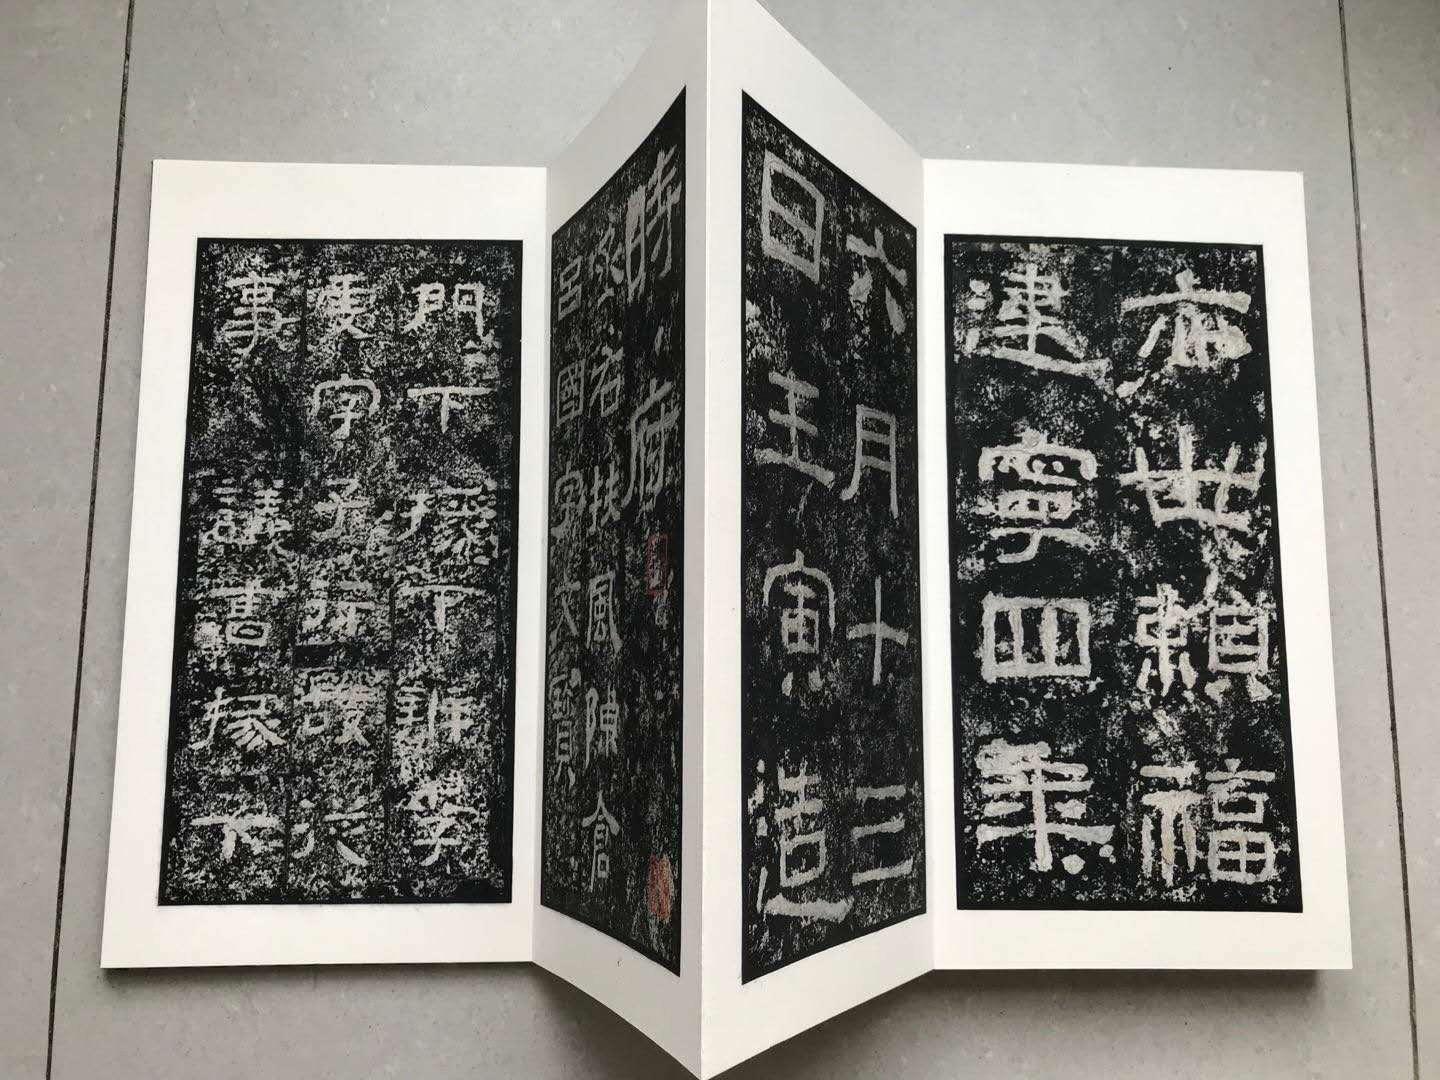 亦世賴福
建寧四年
六月十三
日壬寅造
時府
丞右扶風陳倉
呂國字文寶
門下掾下辨李
虔字子行故從
事 議曹掾下